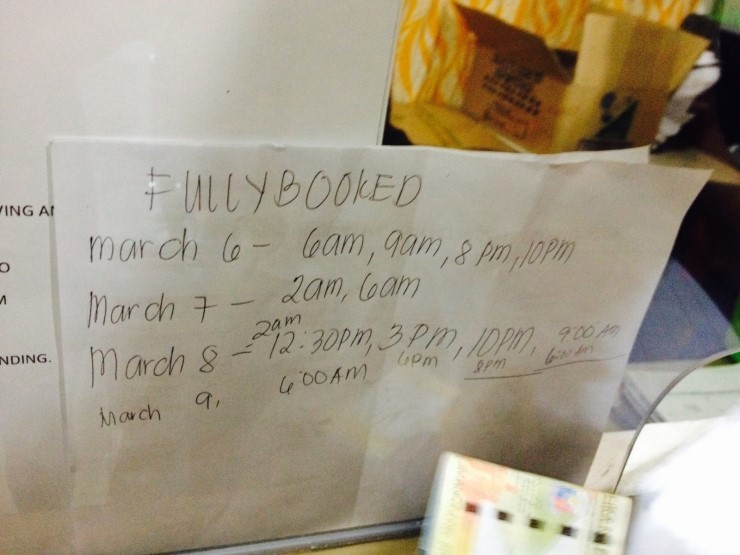 FULLYBOOKED
march 6 - 6am, 9am, 8 pm, 10pm
March 7 - 2am, 6am
2am
March 8 - 12:30pm, 3pm, 10pm, 9:00 Am
6pm 8pm 6:00 Am
March 9, 6:00 AM
VING AN
O
NDING.